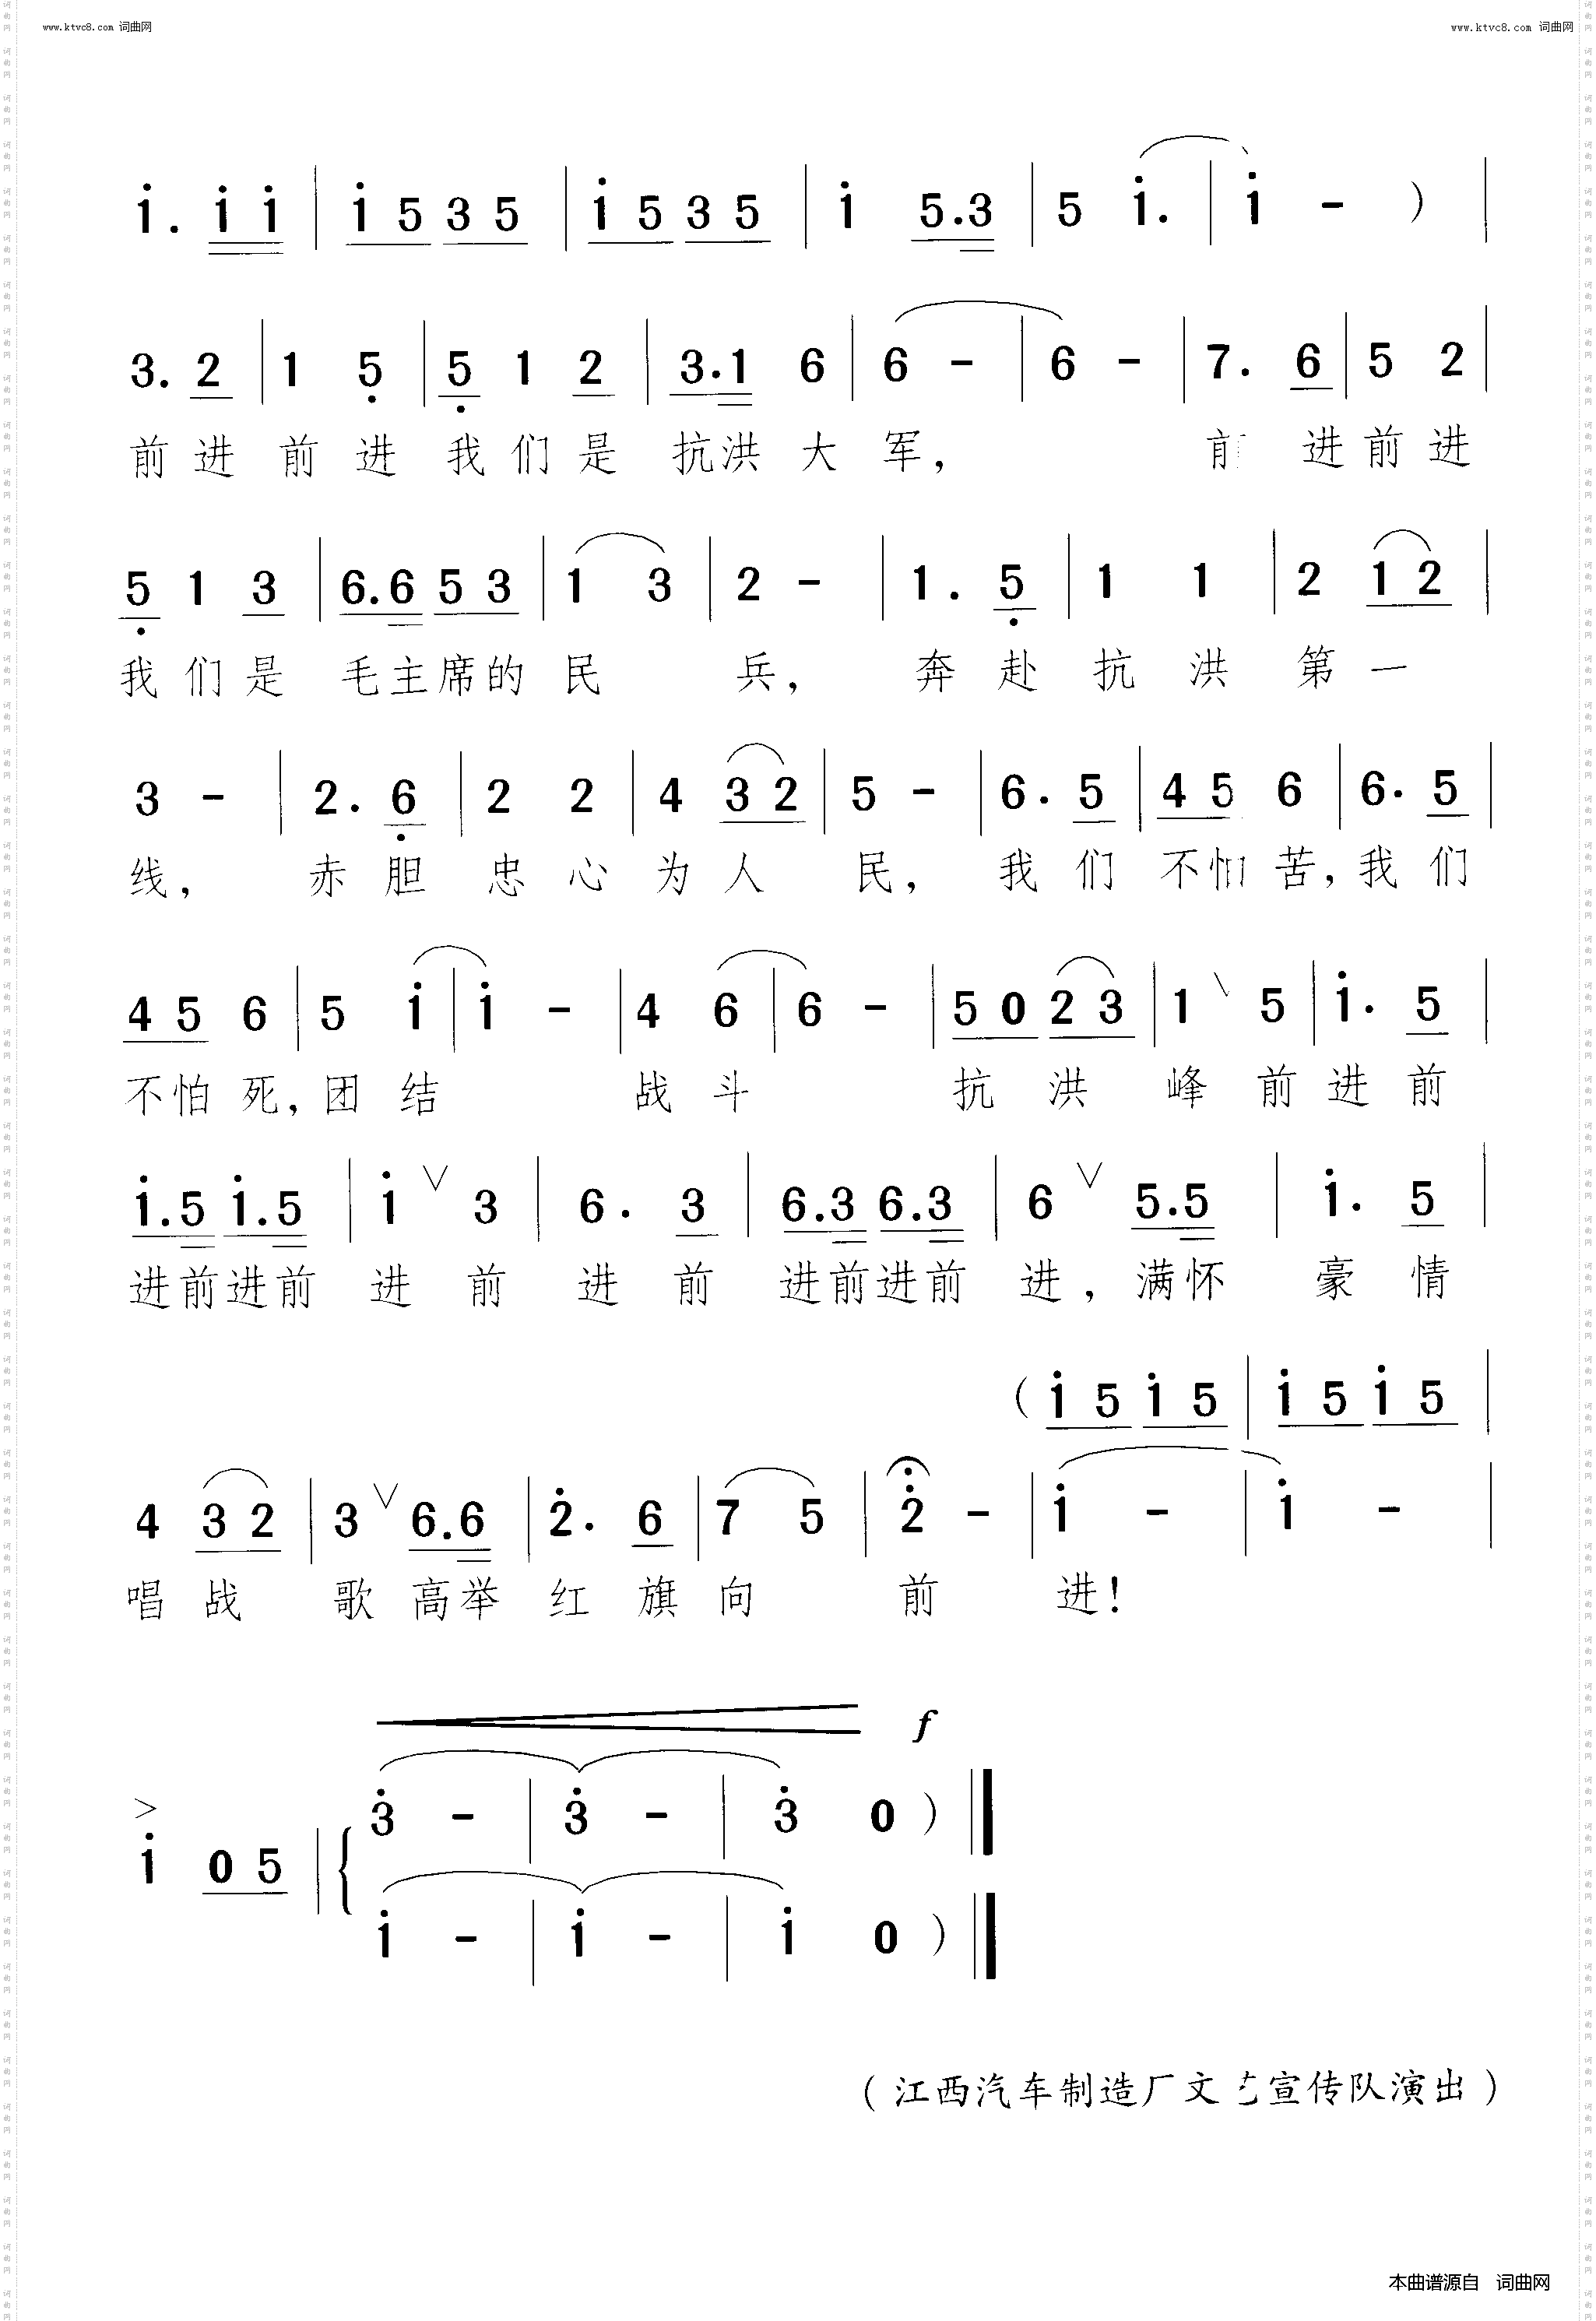 www.ktvc8.com 词曲网 www.ktvc8.com 词曲网
i. i i | i 5 3 5 | i 5 3 5 | i 5.3 | 5 i. | i - ) |
3. 2 | 1 5 | 5 1 2 | 3.1 6 | 6 - | 6 - | 7. 6 | 5 2 |
前进 前进 我们是 抗洪大军, 前进前进
5 1 3 | 6.6 5 3 | 1 3 | 2 - | 1. 5 | 1 1 | 2 1 2 |
我们是 毛主席的民 兵, 奔赴抗洪第一
3 - | 2. 6 | 2 2 | 4 3 2 | 5 - | 6. 5 | 4 5 6 | 6. 5 |
线, 赤胆忠心为人 民, 我们不怕苦,我们
4 5 6 | 5 i | i - | 4 6 | 6 - | 5 0 2 3 | 1 \ 5 | i. 5 |
不怕死,团结 战斗 抗洪 峰前进前
i.5 i.5 | i ∨ 3 | 6. 3 | 6.3 6.3 | 6 ∨ 5.5 | i. 5 |
进前进前 进前 进前 进前进前 进, 满怀 豪情
( i 5 i 5 | i 5 i 5 |
4 3 2 | 3 ∨ 6.6 | 2. 6 | 7 5 | 2 - | i - | i - |
唱战 歌高举 红旗向 前 进!
f
3 - | 3 - | 3 0 )
> i 0 5 |
i - | i - | i 0 )
(江西汽车制造厂文艺宣传队演出)
本曲谱源自 词曲网